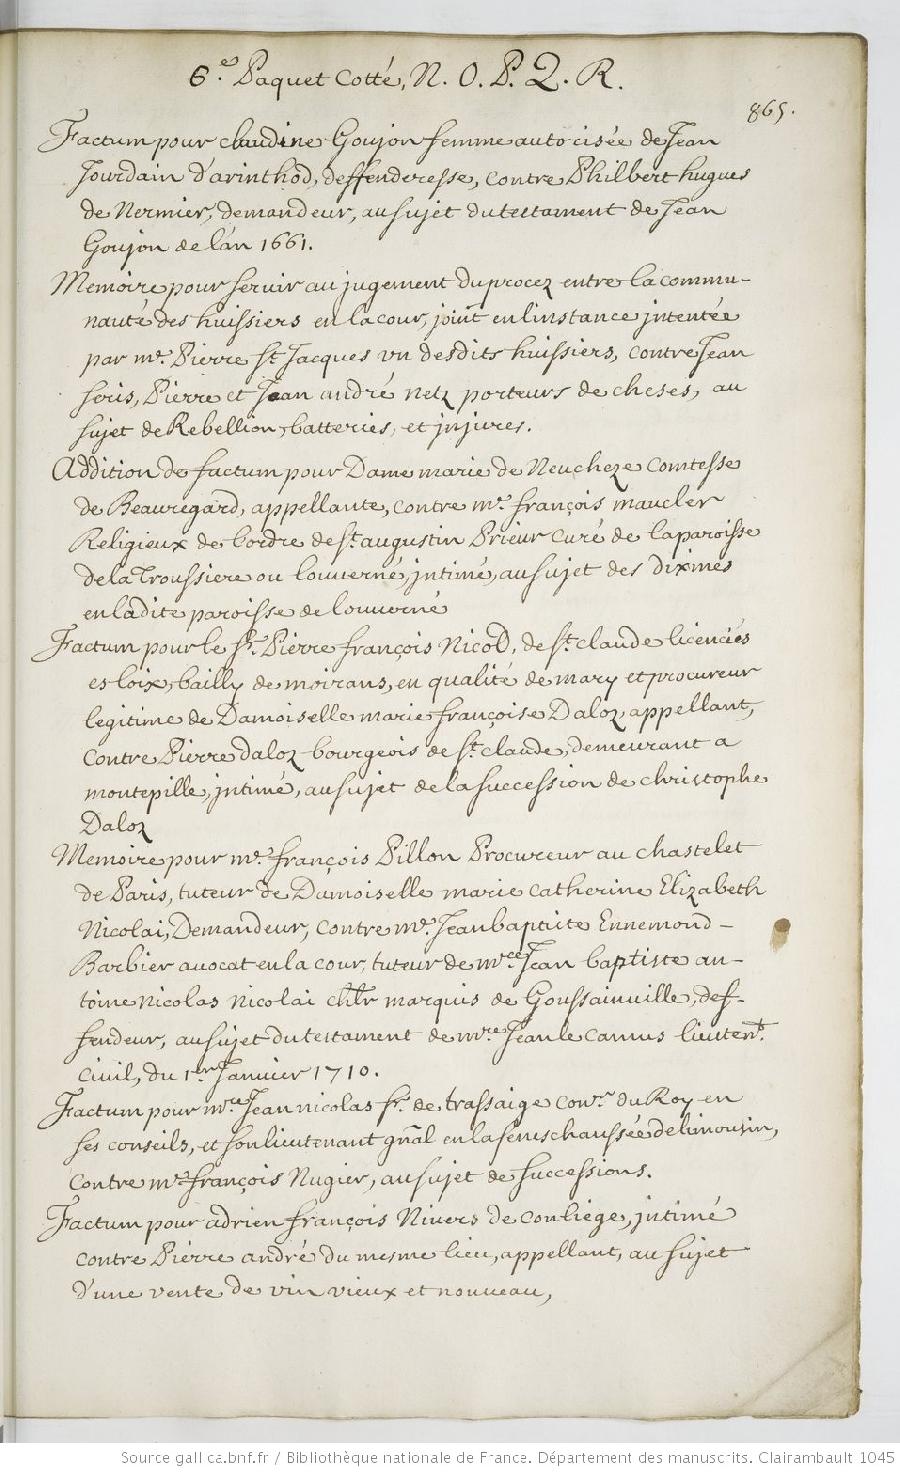 6.e Paquet Cotté, N. O. P. Q. R.
865.
Factum pour claudine Goujon femme autorisée de Jean
Jourdain d'arinthod, deffenderesse, contre Philbert hugues
de Nermier, demandeur, au sujet du testament de Jean
Goujon de l'an 1661.
Memoire pour servir au jugement du procez entre la commu-
nauté des huissiers en la cour, joint en l'instance jntentée
par me. Pierre St Jacques vn desdits huissiers, contre Jean
seris, Pierre et Jean andré netz porteurs de cheses, au
sujet de Rebellion, batteries, et jnjures.
Addition de factum pour Dame marie de Neucheze Comtesse
de Beauregard, appellante, contre me. françois maucler
Religieux de l'ordre de st. augustin Prieur Curé de la paroisse
de la Troussiere ou louverné, jntimé, au sujet des dixmes
en ladite paroisse de louverné
Factum pour le sr. Pierre françois Nicod, de st. claude licenciés
es loix, bailly de moirans, en qualité de mary et procureur
legitime de Damoiselle marie françoise Daloz, appellant,
Contre Pierre daloz bourgeois de st. claude, demeurant a
montepille, jntimé, au sujet de la succession de christophe
Daloz
Memoire pour me. françois Pillon Procureur au chastelet
de Paris, tuteur de Damoiselle marie catherine Elizabeth
Nicolai, Demandeur, contre me. Jean baptiste Ennemond-
Barbier avocat en la cour, tuteur de mre Jean baptiste an-
toine nicolas nicolai chlr marquis de Goussainuille, def-
fendeur, au sujet du testament de mre Jean le camus lieutent.
Ciuil, du 1er Januier 1710.
Factum pour mre Jean nicolas sr. de trassaige conr. du Roy en
ses conseils, et son lieutenant gnal en la seneschaussée de limousin,
Contre me. françois Nugier, au sujet de successions.
Factum pour adrien françois Niuers de conliege, jntimé
contre Pierre andré du mesme lieu, appellant, au sujet
d'une vente de vin vieux et nouveau,
Source gallica.bnf.fr / Bibliothèque nationale de France. Département des manuscrits. Clairambault 1045